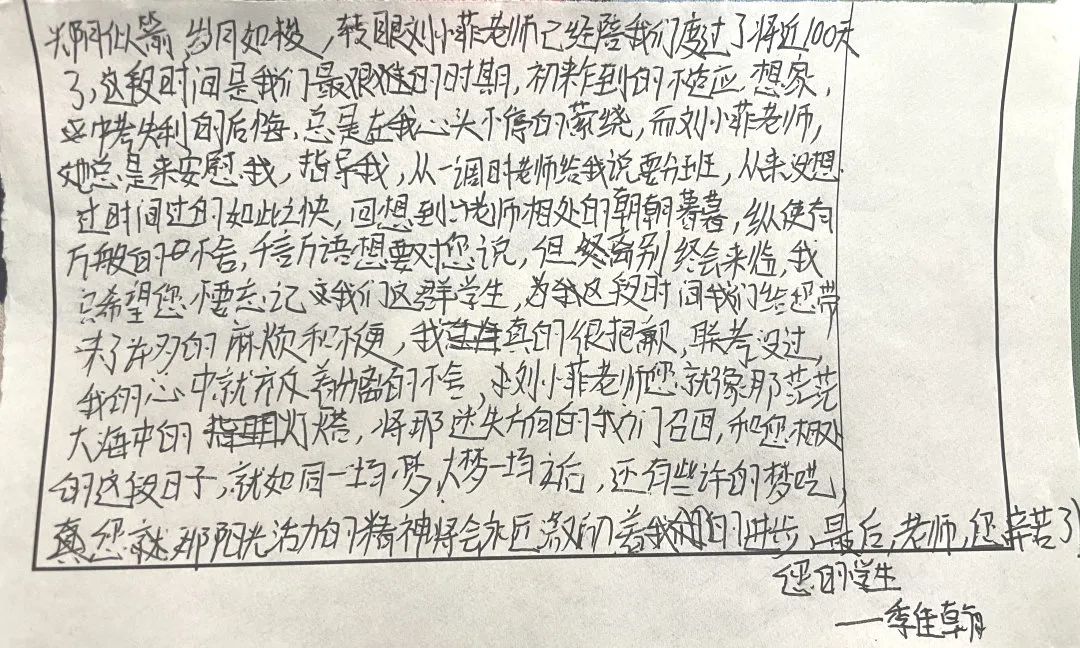 光阴似箭,岁月如梭,转眼刘小菲老师已经陪我们度过了将近100天
了,这段时间是我们最艰难的时期,初来乍到的不适应,想家,
中考失利的后悔,总是在我心头不停的萦绕,而刘小菲老师,
她总是来安慰我,指导我,从一调时老师给我说要分班,从来没想
过时间过的如此之快,回想到与老师相处的朝朝暮暮,纵使有
万般的不舍,千言万语想要对您说,但终离别终会来临,我
只希望您不要忘记我们这群学生,这段时间我们给您带
来了许多的麻烦和不便,我真的很抱歉,联考没过,
我的心中就充斥着分离的不舍,刘小菲老师您就像那茫茫
大海中的灯塔,将那迷失方向的我们召回,和您相处
的这段日子,就如同一场梦,大梦一场之后,还有些许的梦呓,
您就那阳光活力的精神将会永远激励着我们的进步,最后,老师,您辛苦了
您的学生
一季佳翰